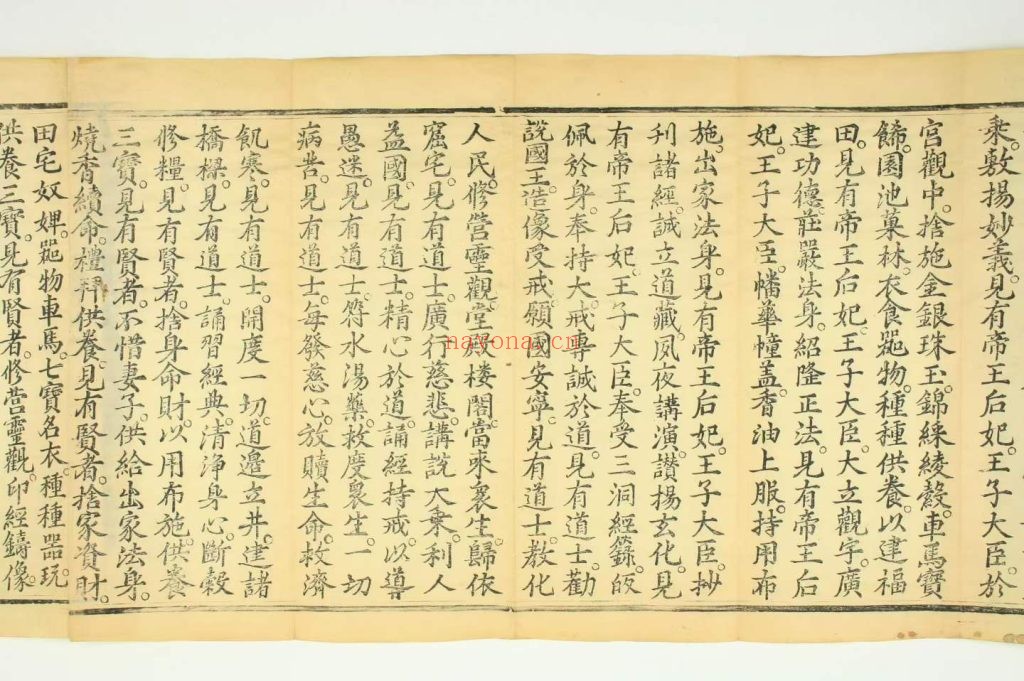 乘。敷揚妙義。見有帝王后妃。王子大臣。於
宮觀中。捨施金銀珠玉。錦綵綾縠。車馬寶
飾。園池菓林。衣食噐物。種種供養。以建福
田。見有帝王后妃。王子大臣。大立觀宇。廣
建功德。莊嚴法身。紹隆正法。見有帝王后
妃。王子大臣。幡華幢盖。香油上服。持用布
施。出家法身。見有帝王后妃。王子大臣。抄
利諸經。誠立道藏。夙夜講演。讚揚玄化。見
有帝王后妃。王子大臣。奉受三洞經籙。皈
佩於身。奉持大戒。專誠於道。見有道士。勸
說國王。造像受戒。願國安寧。見有道士。教化
人民。修營靈觀。堂殿樓閣。當來衆生。歸依
窟宅。見有道士。廣行慈悲。講說大乘。利人
益國。見有道士。精心於道。誦經持戒。以導
愚迷。見有道士。符水湯藥。救度衆生。一切
病苦。見有道士。每發慈心。放贖生命。救濟
飢寒。見有道士。開度一切。道邊立井。建諸
橋樑。見有道士。誦習經典。清浄身心。斷穀
修糧。見有賢者。捨身命財。以用布施。供養
三寶。見有賢者。不惜妻子。供給出家法身。
燒香續命。禮拜供養。見有賢者。捨家資財。
田宅奴婢。噐物車馬。七寶名衣。種種噐玩。
供養三寶。見有賢者。修營靈觀。印經鑄像。
navonai.cn